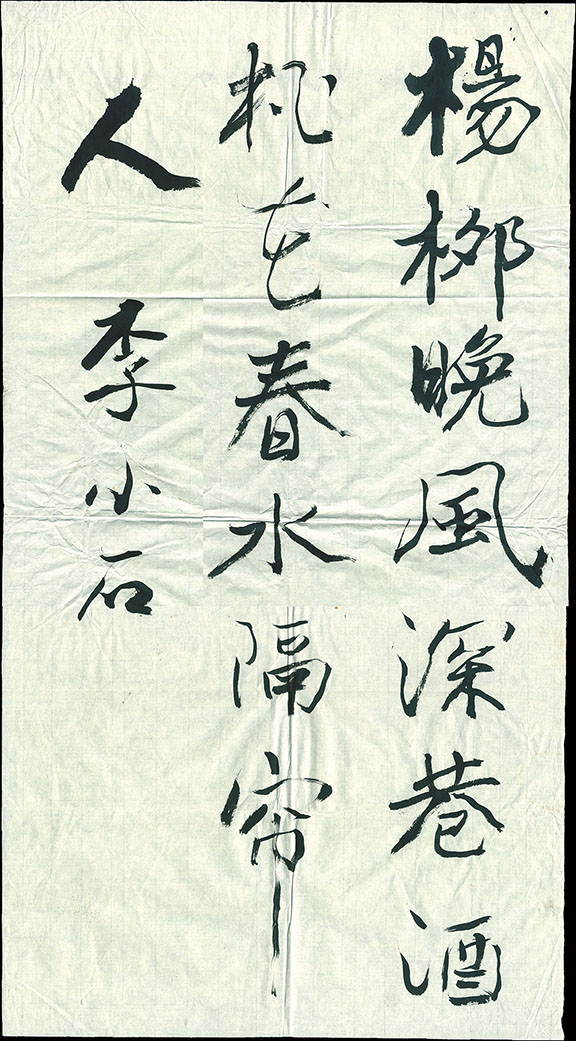 楊柳晚風深巷酒
桃花春水隔帘
人 李小石